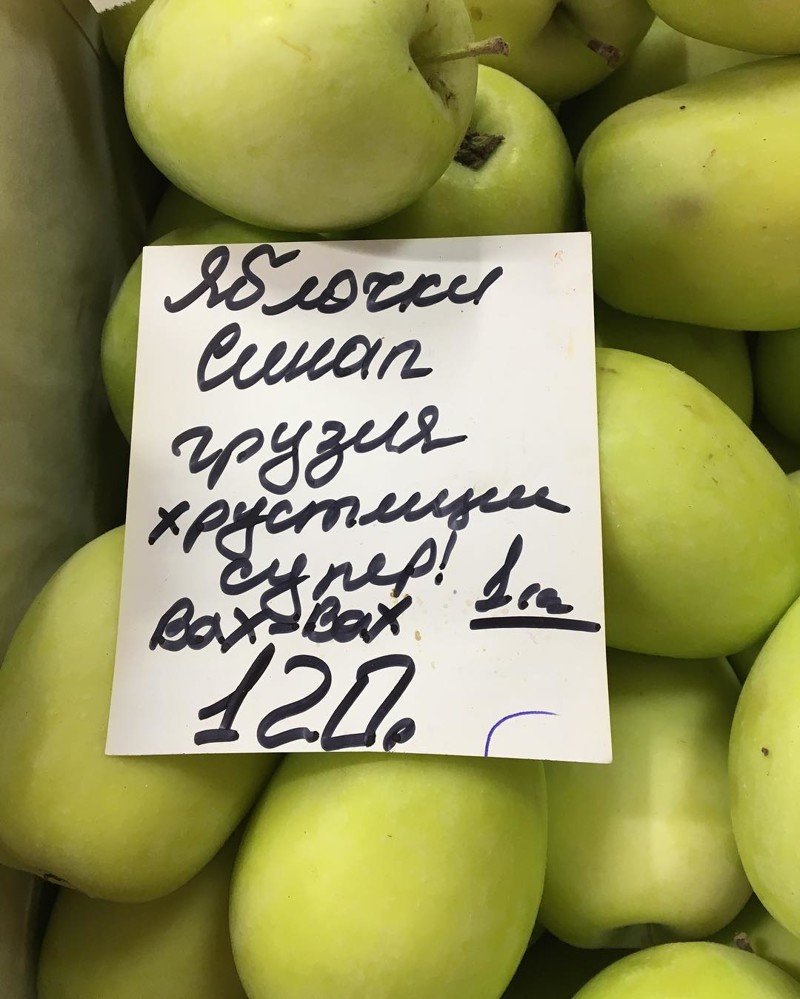 Яблочки
Синап
грузия
хрустящии
супер!
Вах-Вах 1 кг.
120.